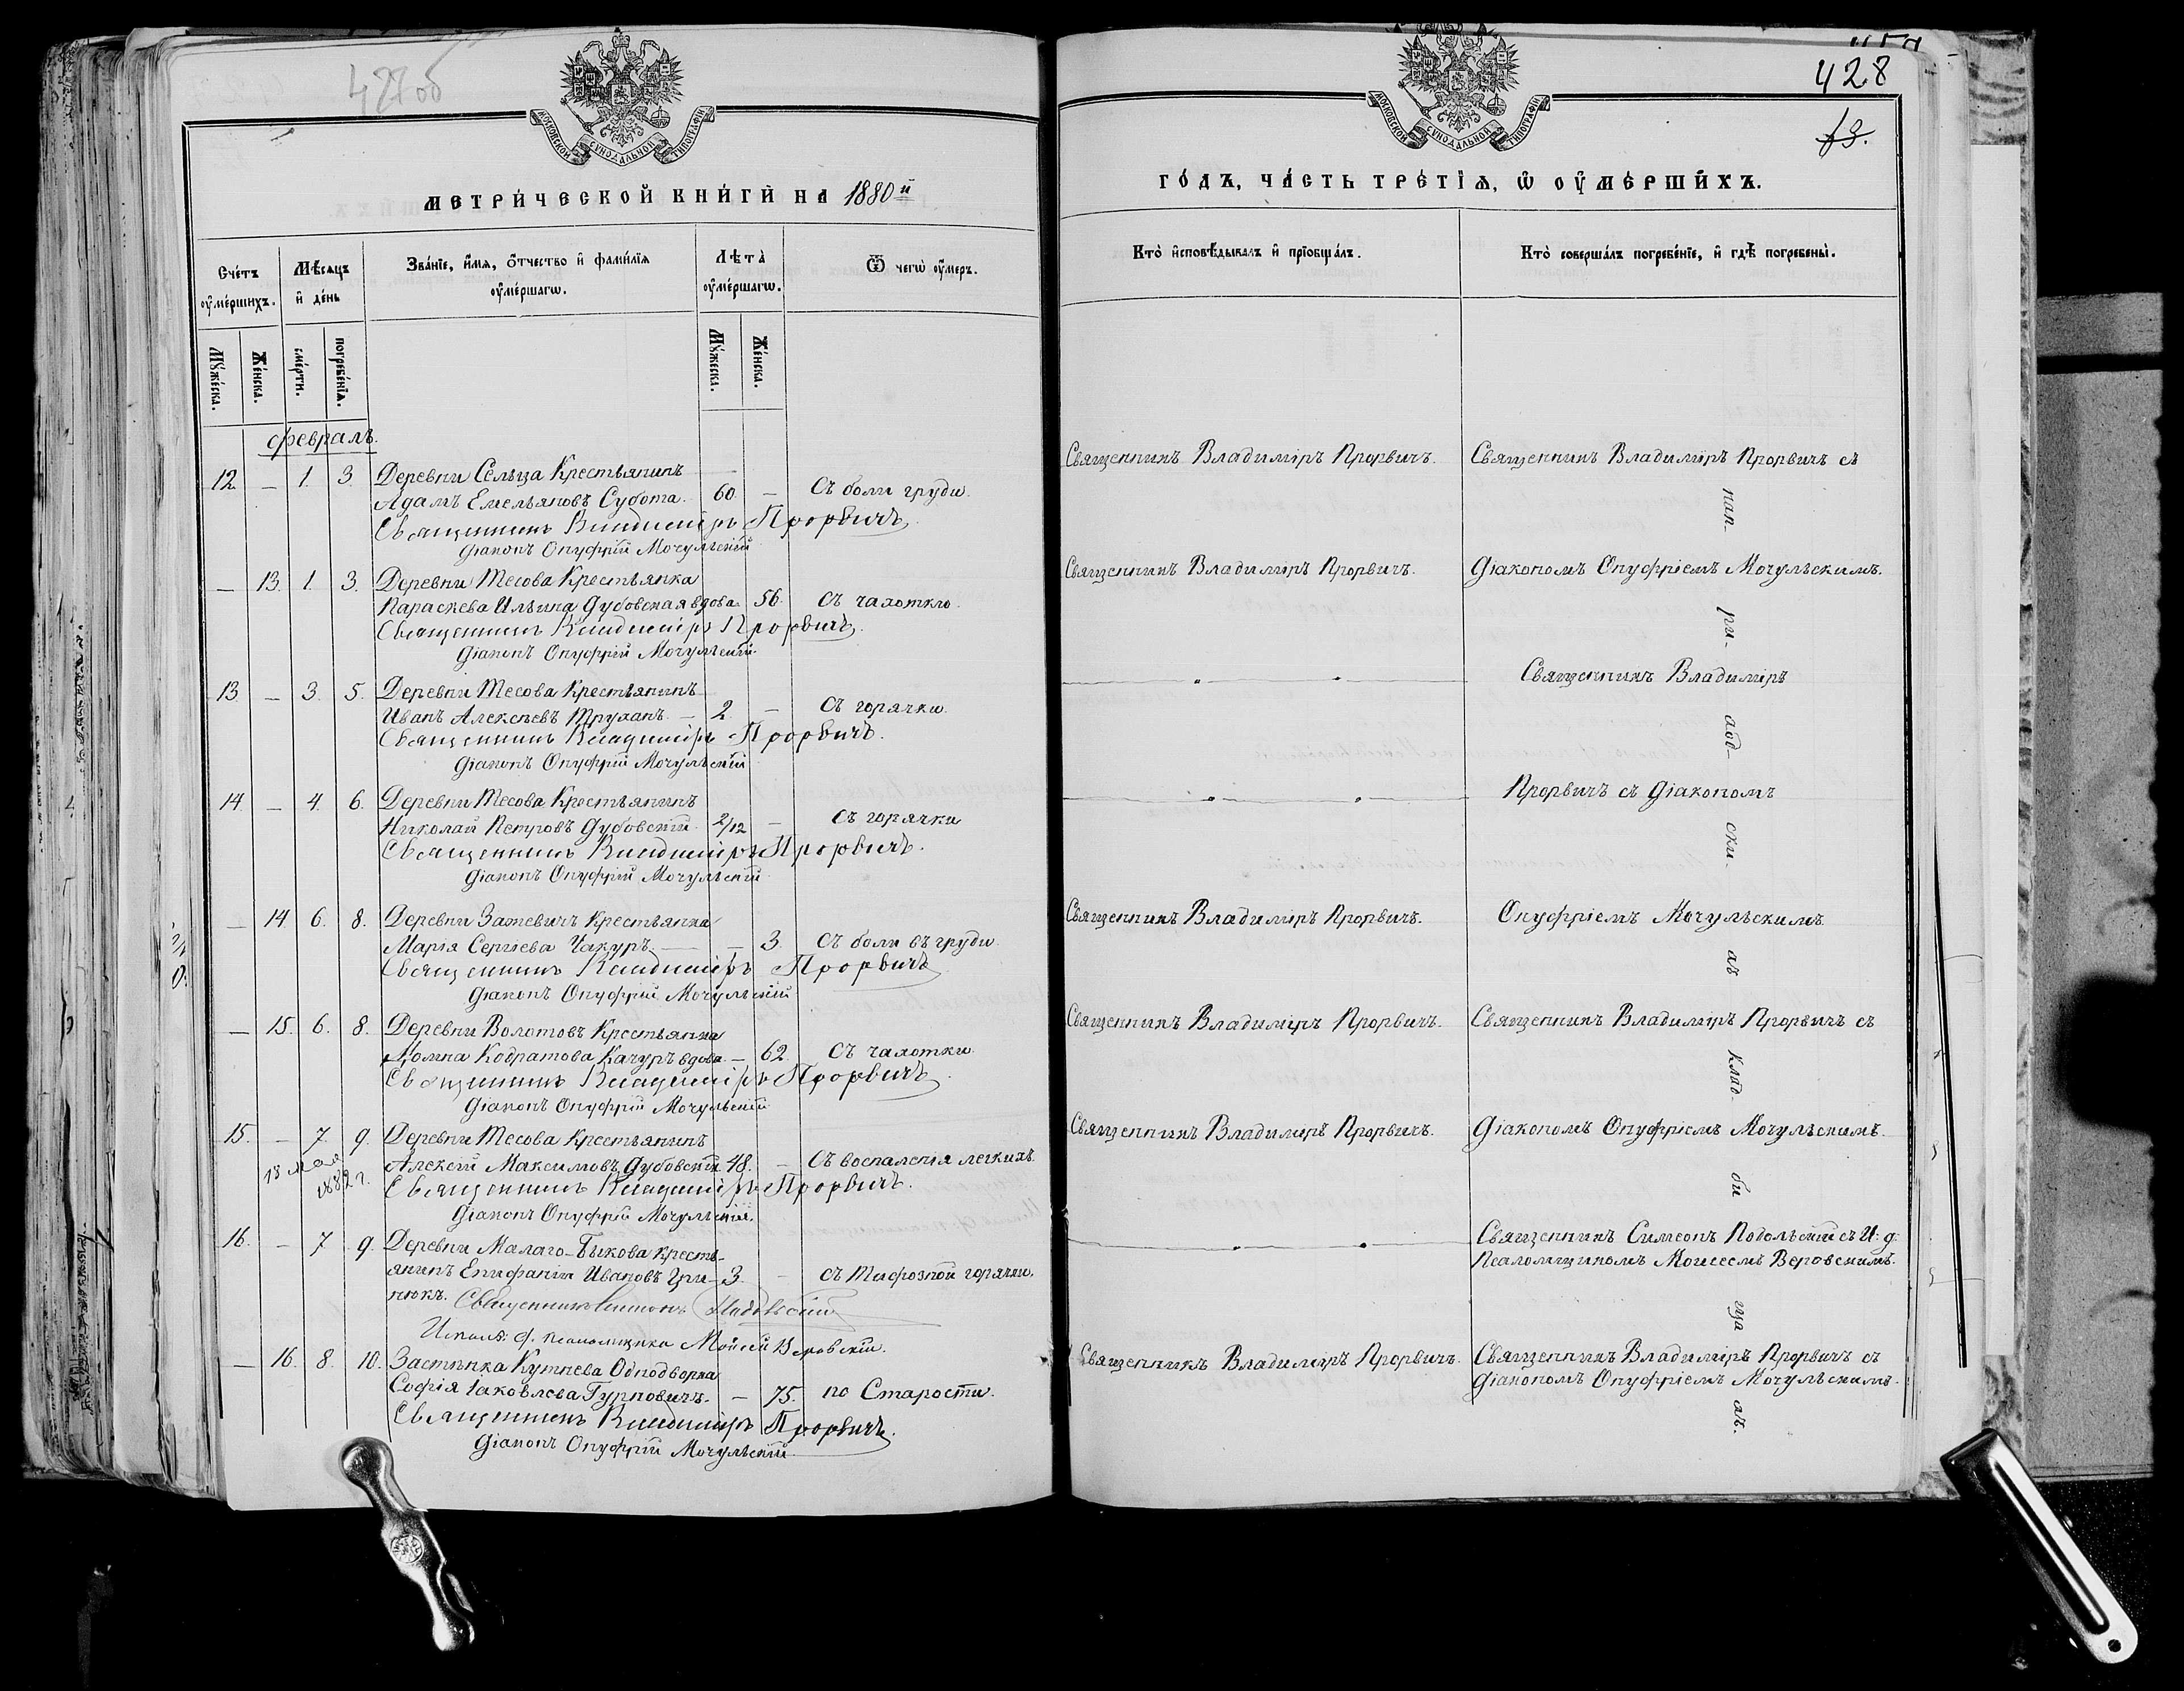 427об
МОСКОВСКОЙ СѴНОДАЛЬНОЙ ТИПОГРАФІИ
МЕТРИ́ЧЕСКОЙ КНИ́ГИ НА 1880й
Сче́тъ оу҆ме́ршихъ.
Мꙋ́жеска.
Же́нска.
Мѣ́сяцъ и҆ де́нь
сме́рти.
погребе́нїѧ.
Зва́нїе, и҆́мѧ, ѻ҆́тчество и҆ фами́лїѧ
оу҆ме́ршагѡ.
Лѣ́та̀
оу҆ме́ршагѡ.
Мꙋ́жеска.
Же́нска.
Ѿ чегѡ̀ оу҆́меръ.
февраль.
12 — 1. 3. Деревни Сельца Крестьянинъ
Адамъ Емельяновъ Субота. 60. — Съ боли груди.
Священникъ Владиміръ Прорвичъ.
Діаконъ Онуфрій Мочульскій
— 13. 1. 3. Деревни Тесова Крестьянка
Параскева Ильина Дубовская вдова. 56. Съ чахоткю.
Священникъ Владиміръ Прорвичъ.
Діаконъ Онуфрій Мочульскій.
13 — 3. 5. Деревни Тесова Крестьянинъ
Иванъ Алексѣевъ Труханъ. — 2. — Съ горячки.
Священникъ Владиміръ Прорвичъ.
Діаконъ Онуфрій Мочульскій
14 — 4. 6. Деревни Тесова Крестьянинъ
Николай Петровъ Дубовскій. 2/12 — Съ горячки
Священникъ Владиміръ Прорвичъ.
Діаконъ Онуфрій Мочульскій
— 14. 6. 8. Деревни Зажевичъ Крестьянка
Марія Сергіева Чакуръ. — — 3. Съ боли въ груди.
Священникъ Владиміръ Прорвичъ
Діаконъ Онуфрій Мочульскій
— 15. 6. 8. Деревни Волотовъ Крестьянка
Домна Кодратова Качуръ вдова. — 62. Съ чахотки.
Священникъ Владиміръ Прорвичъ.
Діаконъ Онуфрій Мочульскій
15. — 7. 9. Деревни Тесова Крестьянинъ
Алексій Максимовъ Дубовскій. 48. — Съ воспаленія легкихъ.
13 мая
1882 г.
Священникъ Владиміръ Прорвичъ.
Діаконъ Онуфрій Мочульскій.
16. — 7 9. Деревни Малаго-Быкова кресть-
янинъ Епифаній Ивановъ Гри- 3. — съ Тифозной горячки.
нюкъ. Священникъ Симеонъ Подольскій
Исполя: д. псаломщика Моисей Веровскій.
— 16. 8. 10. Застѣнка Кутнева Однодворка
Софія Іаковлева Гурновичъ. — 75. по Старости.
Священникъ Владиміръ Прорвичъ.
Діаконъ Онуфрій Мочульскій
428
МОСКОВСКОЙ СѴНОДАЛЬНОЙ ТИПОГРАФІИ
ГО́ДЪ, ЧА́СТЬ ТРЕ́ТЇѦ, Ѡ҆ ОУ҆МЕ́РШИХЪ.
Кто̀ и҆сповѣ́дывалъ и҆ прїобща́лъ.
Кто̀ соверша́лъ погребе́нїе, и҆ гдѣ̀ погребены̀.
Священникъ Владиміръ Прорвичъ. Священникъ Владиміръ Прорвичъ съ
Священникъ Владиміръ Прорвичъ. Діакономъ Онуфріемъ Мочульскимъ.
Священникъ Владиміръ
Прорвичъ съ Діакономъ
Священникъ Владиміръ Прорвичъ. Онуфріемъ Мочульскимъ.
Священникъ Владиміръ Прорвичъ. Священникъ Владиміръ Прорвичъ съ
Священникъ Владиміръ Прорвичъ. Діакономъ Онуфріемъ Мочульскимъ.
Священникъ Симеонъ Подольскій съ И: д:
Псаломщикомъ Моисеемъ Веровскимъ.
Священникъ Владиміръ Прорвичъ. Священникъ Владиміръ Прорвичъ съ
Діакономъ Онуфріемъ Мочульскимъ.
на
при-
ход-
ски-
хъ
клад-
би
ща
хъ.